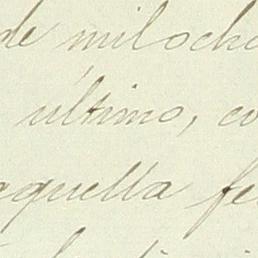 de milocho
último, co
aquella fe